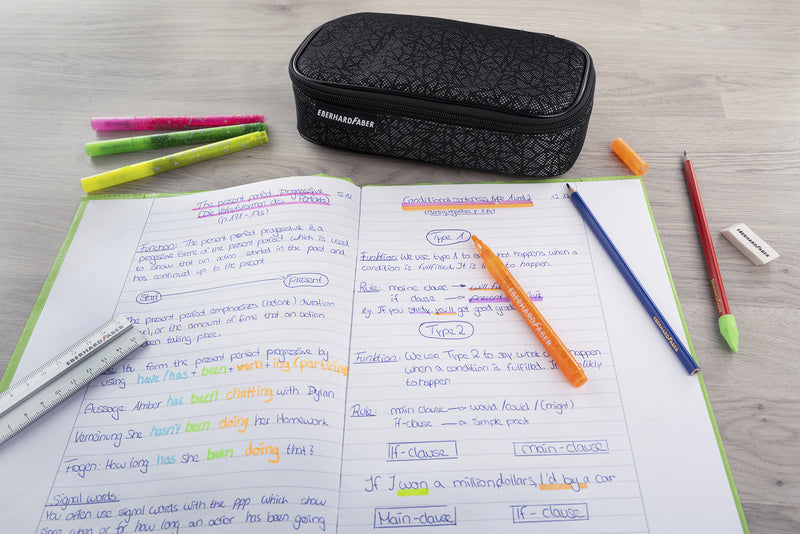 EBERHARDFABER
The present perfect progressive
(Die Verlaufsform des Perfekts)
(p.131 - 135)
Function: The present perfect progressive is a
progressive form of the present perfect which is used
to show that an action started in the past and
has continued up to the present
Start
Present
The present perfect emphasizes (betont) duration
or the amount of time that an action
been taking place.
form the present perfect progressive by
using have/has + been + verb + ing (participle
Aussage: Amber has been chatting with Dylan
Verneinung She hasn't been doing her Homework
Fragen: How long has she been doing that?
Signal words:
You often use signal words with the ppp which show
since when or for how long an action has been going
EBERHARDFABER
Conditional sentences type 1 und 2
Type 1
Funktion: We use type 1 to happens when a
condition is fulfilled. It is to happen.
Rule: maine clause will
if clause present
e.g. If you study, you'll get good
Type 2
Funktion: We use Type 2 to say what happen
when a condition is fulfilled. It
to happen
Rule: main clause would /could / (might)
if-clause Simple past
If-clause
main-clause
If I won a million dollars, I'd by a car
Main-clause
If - clause
EBERHARDFABER
EBERHARDFABER
EBERHARDFABER